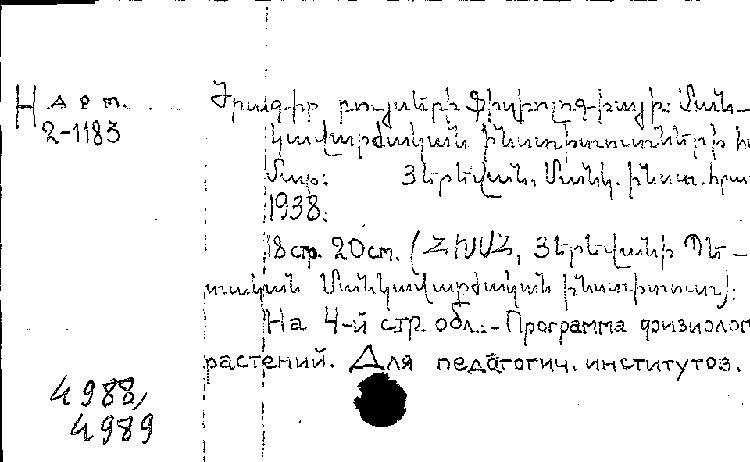 Н арт. Ծրագիր բույսերի Ֆիզիոլոգիայի: Ման-
2-1183 կավարժական ինստիտուտների հ
մար: Յերեվան, Մանկ. ինստ. հրատ
1938.
18 стр. 20 см. (ՀԽՍՀ, Յերեվանի Պե-
տական Մանկավարժական ինստիտուտ):
На 4-й стр. обл.:- Программа физиолог
растений. Для педагогич. институтов.
4988,
4989